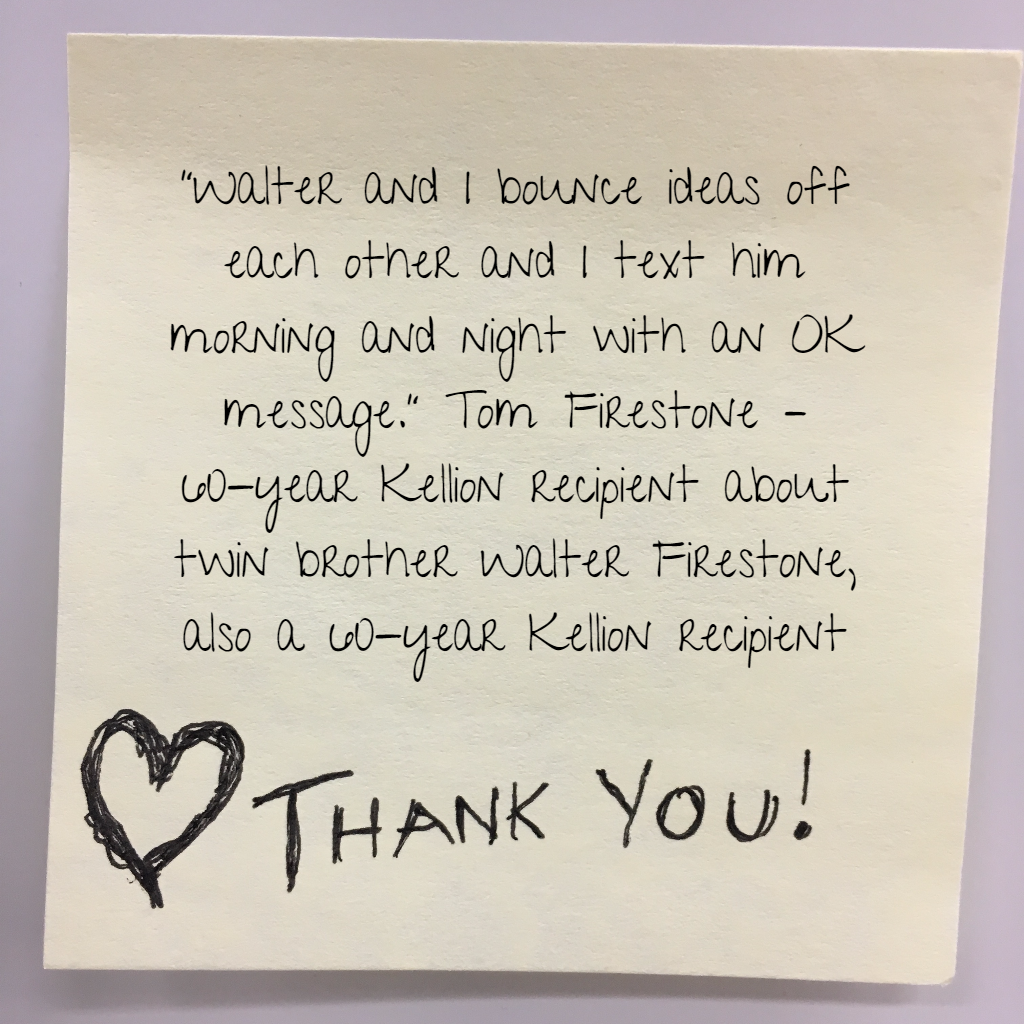 "Walter and I bounce ideas off
each other and I text him
morning and night with an OK
message." Tom Firestone -
60-year Kellion recipient about
twin brother Walter Firestone,
also a 60-year Kellion recipient
THANK YOU!